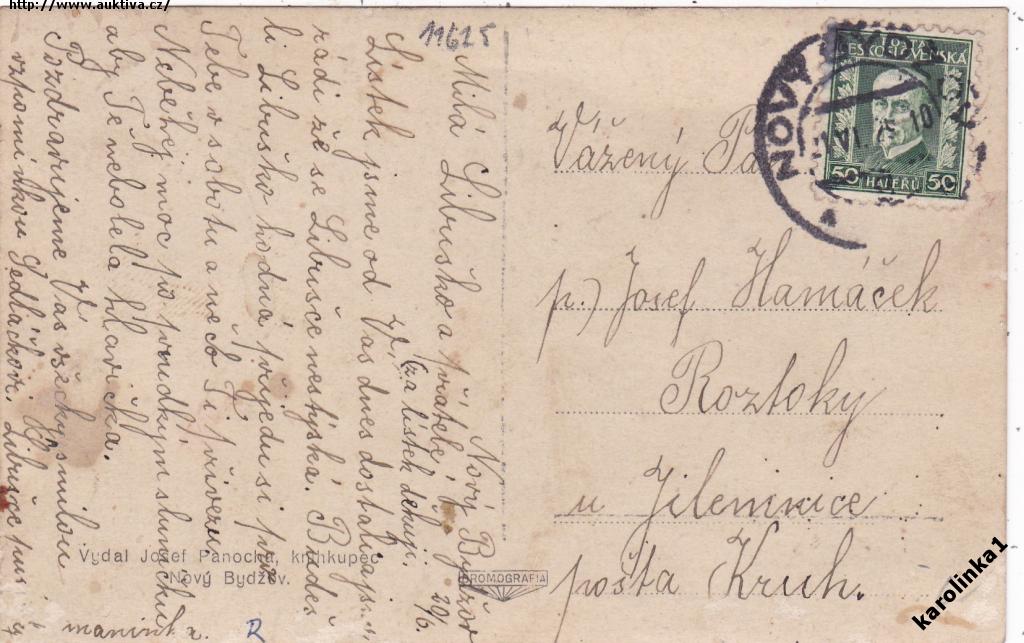 http://www.auktiva.cz/
11625
Nový Bydžov 20/6.
Milá Libuško a přátelé!
za lístek děkuji.
Lístek jsme od Vás dnes dostali a jsme
rádi že se Libušce nestýská. Budeš
li Libuško hodná přijedu si pro
Tebe v sobotu a něco Ti přivezu.
Neběhej moc po prudkým sluníčku
aby Tě nebolela hlavička.
Pozdravujeme Vás všecky s milou
vzpomínkou Sedláčkovi. Libušce
Vydal Josef Panocha, knihkupec
Nový Bydžov.
R
BROMOGRAFIA
POŠTA
ČESKOSLOVENSKÁ
50 HALÉŘŮ 50
NOVÝ
VI
10
Vážený
p.) Josef Hamáček
Roztoky
u Jilemnice
pošta Kruh.
karolinka1